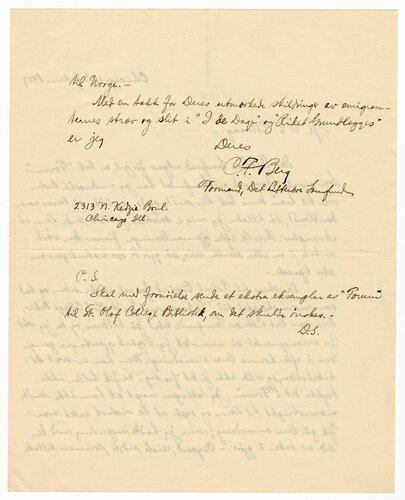 til Norge. —
Med en takk for Deres utmerkede skildringer av emigran-
ternes strev og slit i "I de Dage" og "Riket Grundlegges"
er jeg
Deres
C. F. Berg
Formand, Det Litterære Samfund
2313 N. Kedzie Boul.
Chicago Ill.
P. S.
Skal med fornöielse sende et ekstra eksemplar av "Forum"
til St. Olaf College Bibliotek, om det skulde önskes. -
D.S.